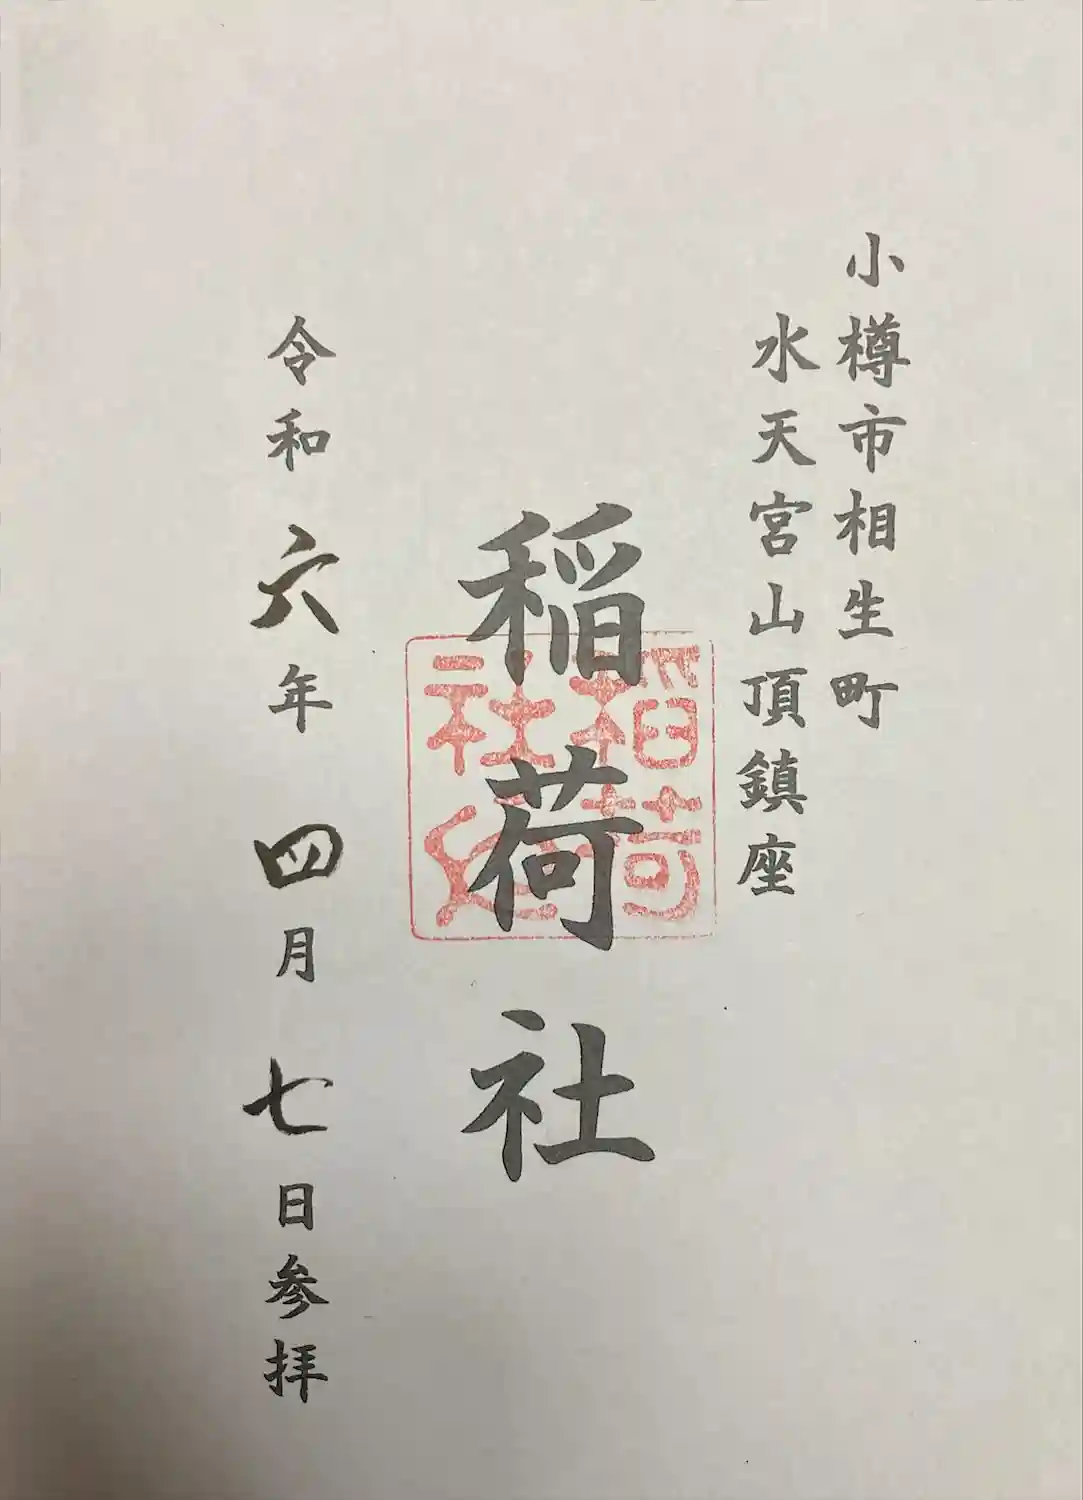 小樽市相生町
水天宮山頂鎮座
稲荷社
令和六年四月七日参拝